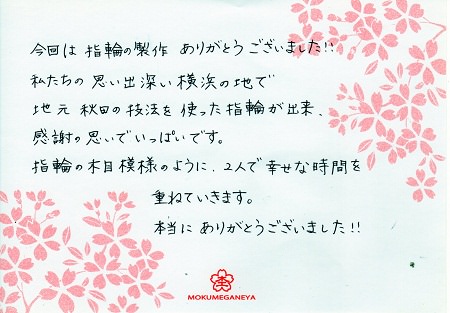 今回は 指輪の製作 ありがとうございました!!
私たちの 思い出深い 横浜の地で
地元 秋田の技法を 使った指輪が出来、
感謝の思いでいっぱいです。
指輪の木目模様のように、2人で幸せな時間を
重ねていきます。
本当に ありがとうございました!!
MOKUMEGANEYA